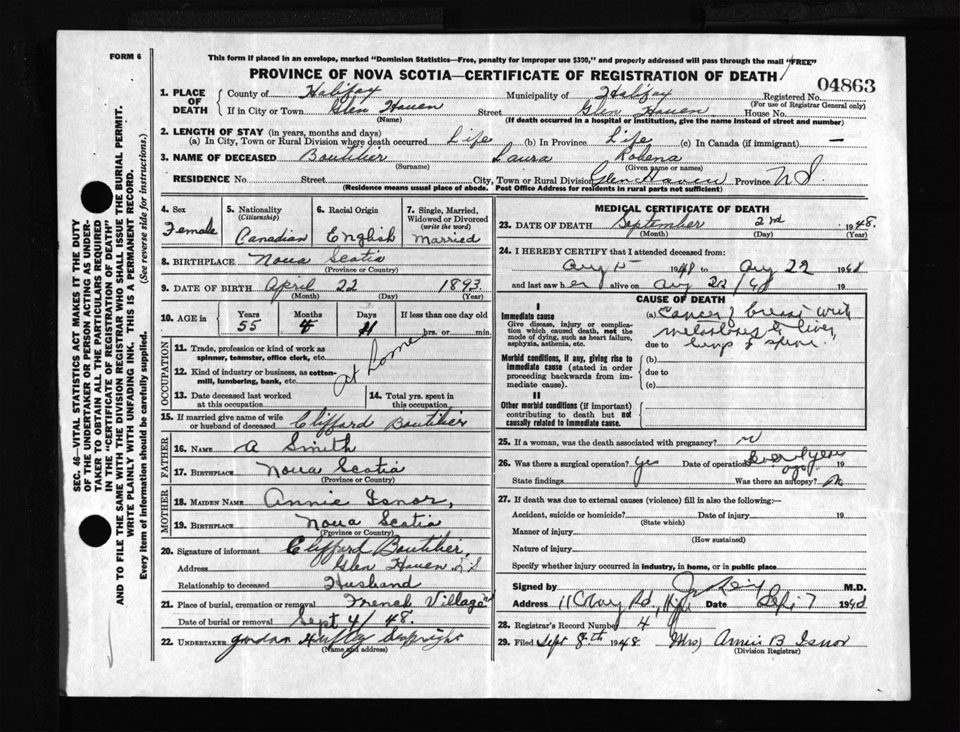 FORM 6
This form if placed in an envelope, marked "Dominion Statistics—Free, penalty for improper use $300," and properly addressed will pass through the mail "FREE"
PROVINCE OF NOVA SCOTIA—CERTIFICATE OF REGISTRATION OF DEATH
04863
1. PLACE OF DEATH
County of Halifax Municipality of Halifax Registered No.
(For use of Registrar General only)
If in City or Town Glen Haven Street Glen Haven House No.
(Name) (If death occurred in a hospital or institution, give the name instead of street and number)
2. LENGTH OF STAY (in years, months and days)
(a) In City, Town or Rural Division where death occurred Life (b) In Province Life (c) In Canada (if immigrant) —
3. NAME OF DECEASED Boutilier Laura Rohena
(Surname) (Given name or names)
RESIDENCE No. Street City, Town or Rural Division Glen Haven Province N S
(Residence means usual place of abode. Post Office Address for residents in rural parts not sufficient)
4. Sex
Female
5. Nationality
(Citizenship)
Canadian
6. Racial Origin
English
7. Single, Married, Widowed or Divorced
(write the word)
Married
8. BIRTHPLACE Nova Scotia
(Province or Country)
9. DATE OF BIRTH April 22 1893
(Month) (Day) (Year)
10. AGE in Years Months Days If less than one day old
55 4 11 hrs. or min.
OCCUPATION
11. Trade, profession or kind of work as spinner, teamster, office clerk, etc.
12. Kind of industry or business, as cotton-mill, lumbering, bank, etc.
at home
13. Date deceased last worked at this occupation
14. Total yrs. spent in this occupation
15. If married give name of wife or husband of deceased Clifford Boutilier
FATHER
16. Name A Smith
17. Birthplace Nova Scotia
MOTHER
18. Maiden Name Annie Isnor,
19. Birthplace Nova Scotia
(Province or Country)
20. Signature of informant Clifford Boutilier,
Address Glen Haven N S
Relationship to deceased Husband
21. Place of burial, cremation or removal French Village
Date of burial or removal Sept 4/48.
22. Undertaker Gordon
(Name and address)
MEDICAL CERTIFICATE OF DEATH
23. DATE OF DEATH September 2nd 1948.
(Month) (Day) (Year)
24. I HEREBY CERTIFY that I attended deceased from:
Aug 1948 to Aug 22 1948
and last saw her alive on Aug 22/48 19
CAUSE OF DEATH
I
Immediate cause
Give disease, injury or complication which caused death, not the mode of dying, such as heart failure, asphyxia, asthenia, etc.
(a) Cancer of breast with
metastases to liver,
due to lungs & spine.
Morbid conditions, if any, giving rise to immediate cause (stated in order proceeding backwards from immediate cause).
(b)
due to
(c)
II
Other morbid conditions (if important) contributing to death but not causally related to immediate cause.
25. If a woman, was the death associated with pregnancy?
26. Was there a surgical operation? yes Date of operation Several years ago 19
State findings Was there an autopsy? No
27. If death was due to external causes (violence) fill in also the following:—
Accident, suicide or homicide? Date of injury 19
(State which)
Manner of injury
(How sustained)
Nature of injury
Specify whether injury occurred in industry, in home, or in public place
Signed by M.D.
Address Rd, Date Sept 7 1948
28. Registrar's Record Number 4
29. Filed Sept 8th 1948 (Mrs) Annie B Isnor
(Division Registrar)
SEC. 46—VITAL STATISTICS ACT MAKES IT THE DUTY
OF THE UNDERTAKER OR PERSON ACTING AS UNDER-
TAKER TO OBTAIN ALL THE PARTICULARS REQUIRED
IN THE "CERTIFICATE OF REGISTRATION OF DEATH"
AND TO FILE THE SAME WITH THE DIVISION REGISTRAR WHO SHALL ISSUE THE BURIAL PERMIT.
WRITE PLAINLY WITH UNFADING INK. THIS IS A PERMANENT RECORD.
Every item of information should be carefully supplied. (See reverse side for instructions.)